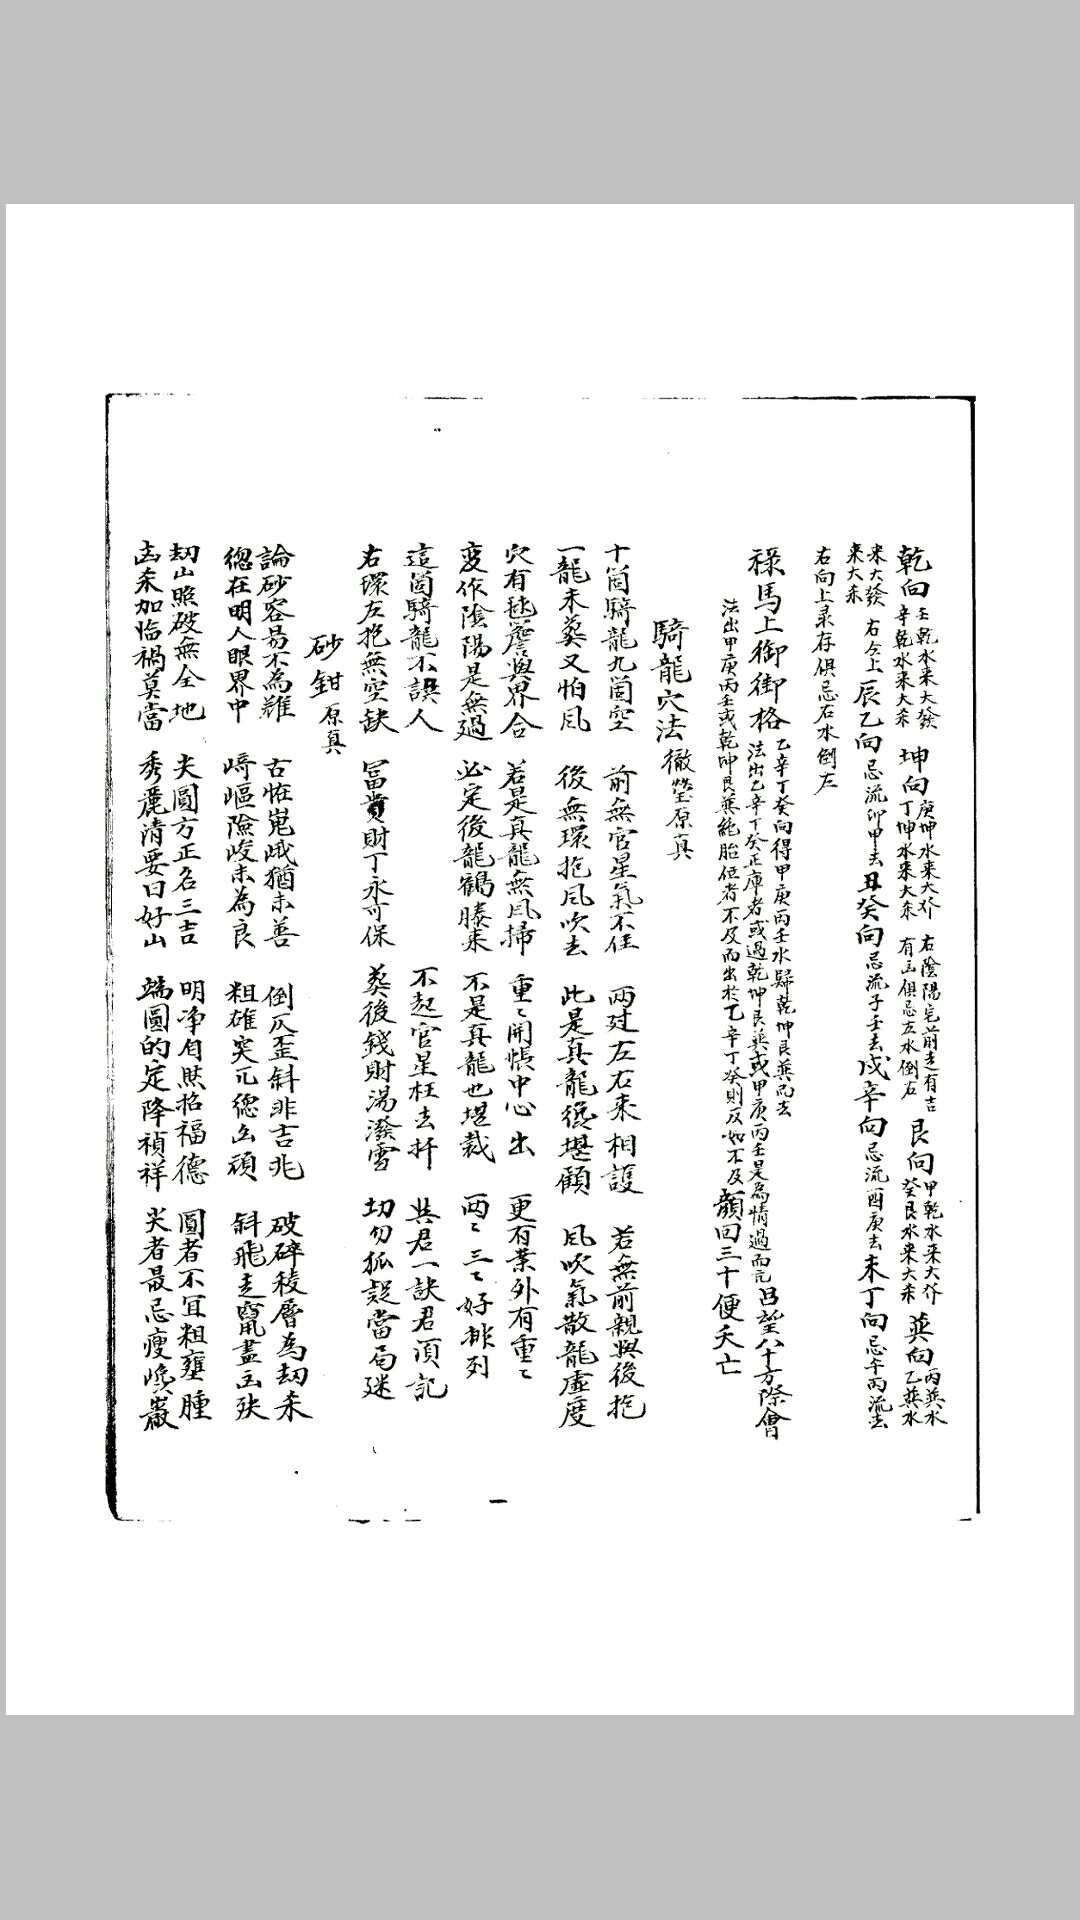 乾向壬乾水来大發辛乾水来大杀 坤向庚坤水来大發丁坤水来大杀 右陰陽宅前走有吉有凶俱忌左水倒右 艮向甲艮水来大發癸艮水来大杀 巽向丙巽水乙巽水
来大發来大杀 右仝上 辰乙向忌流卯甲去 丑癸向忌流子壬去 戌辛向忌流酉庚去 未丁向忌午丙流去
右向上录存俱忌右水倒左
禄馬上御街格 乙辛丁癸向得甲庚丙壬水歸乾坤艮巽而去
法出乙辛丁癸正庫者或過乾坤艮巽或甲庚丙壬是為情過而亢 吕望八十方際會
法出甲庚丙壬或乾坤艮巽絶胎位者不及而出於乙辛丁癸則反如不及 顔回三十便夭亡
騎龍穴法 徹瑩原真
十箇騎龍九箇空 前無官星氣不住 两边左右来相護 若無前親與後抱
一龍未葬又怕風 後無環抱風吹去 此是真龍縂堪顧 風吹氣散龍虚度
穴有毬簷與界合 若是真龍無風掃 重〻開帳中心出 更有業外有重〻
变作陰陽是無過 必定後龍鶴膝来 不是真龍也堪裁 两〻三〻好排列
這箇騎龍不誤人 不起官星枉去扦 共君一訣君須記
右環左抱無空缺 冨貴財丁永可保 葬後錢財湯潑雪 切勿狐疑當局迷
砂鉗 原真
論砂容易不為難 古恠嵬峨猶未善 倒仄歪斜非吉兆 破碎稜層為刼杀
縂在明人眼界中 崎嶇險峻未為良 粗雄突兀縂凶頑 斜飛走竄盡凶殃
刼山照破無全地 夫圓方正名三吉 明净自然招福德 圓者不宜粗壅腫
凶杀加临禍莫當 秀麗清要曰好山 端圓的定降禎祥 尖者最忌瘦巉巖